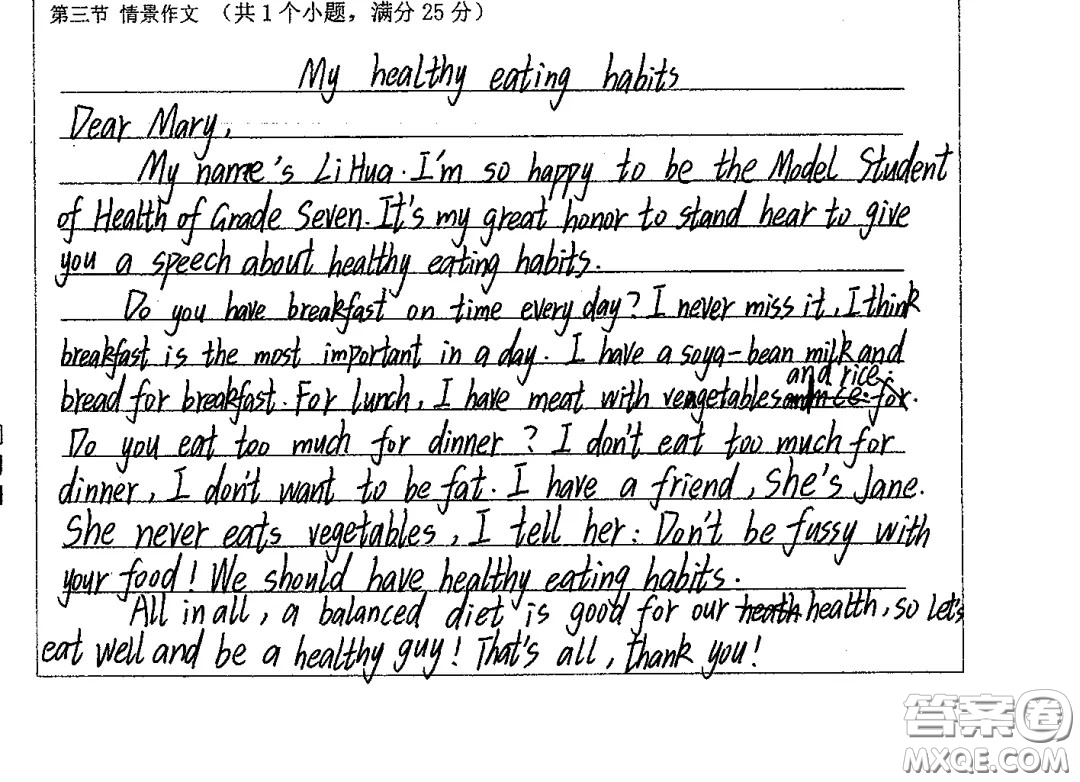 第三节 情景作文 （共1个小题，满分25分）
My healthy eating habits
Dear Mary,
My name's Li Hua. I'm so happy to be the Model Student
of Health of Grade Seven. It's my great honor to stand hear to give
you a speech about healthy eating habits.
Do you have breakfast on time every day? I never miss it, I think
breakfast is the most important in a day. I have a soya-bean milk and
bread for breakfast. For lunch, I have meat with vengetables and rice.
Do you eat too much for dinner? I don't eat too much for
dinner, I don't want to be fat. I have a friend, She's Jane.
She never eats vegetables, I tell her: Don't be fussy with
your food! We should have healthy eating habits.
All in all, a balanced diet is good for our health, so let's
eat well and be a healthy guy! That's all, thank you!
答案圈
MXQE.COM